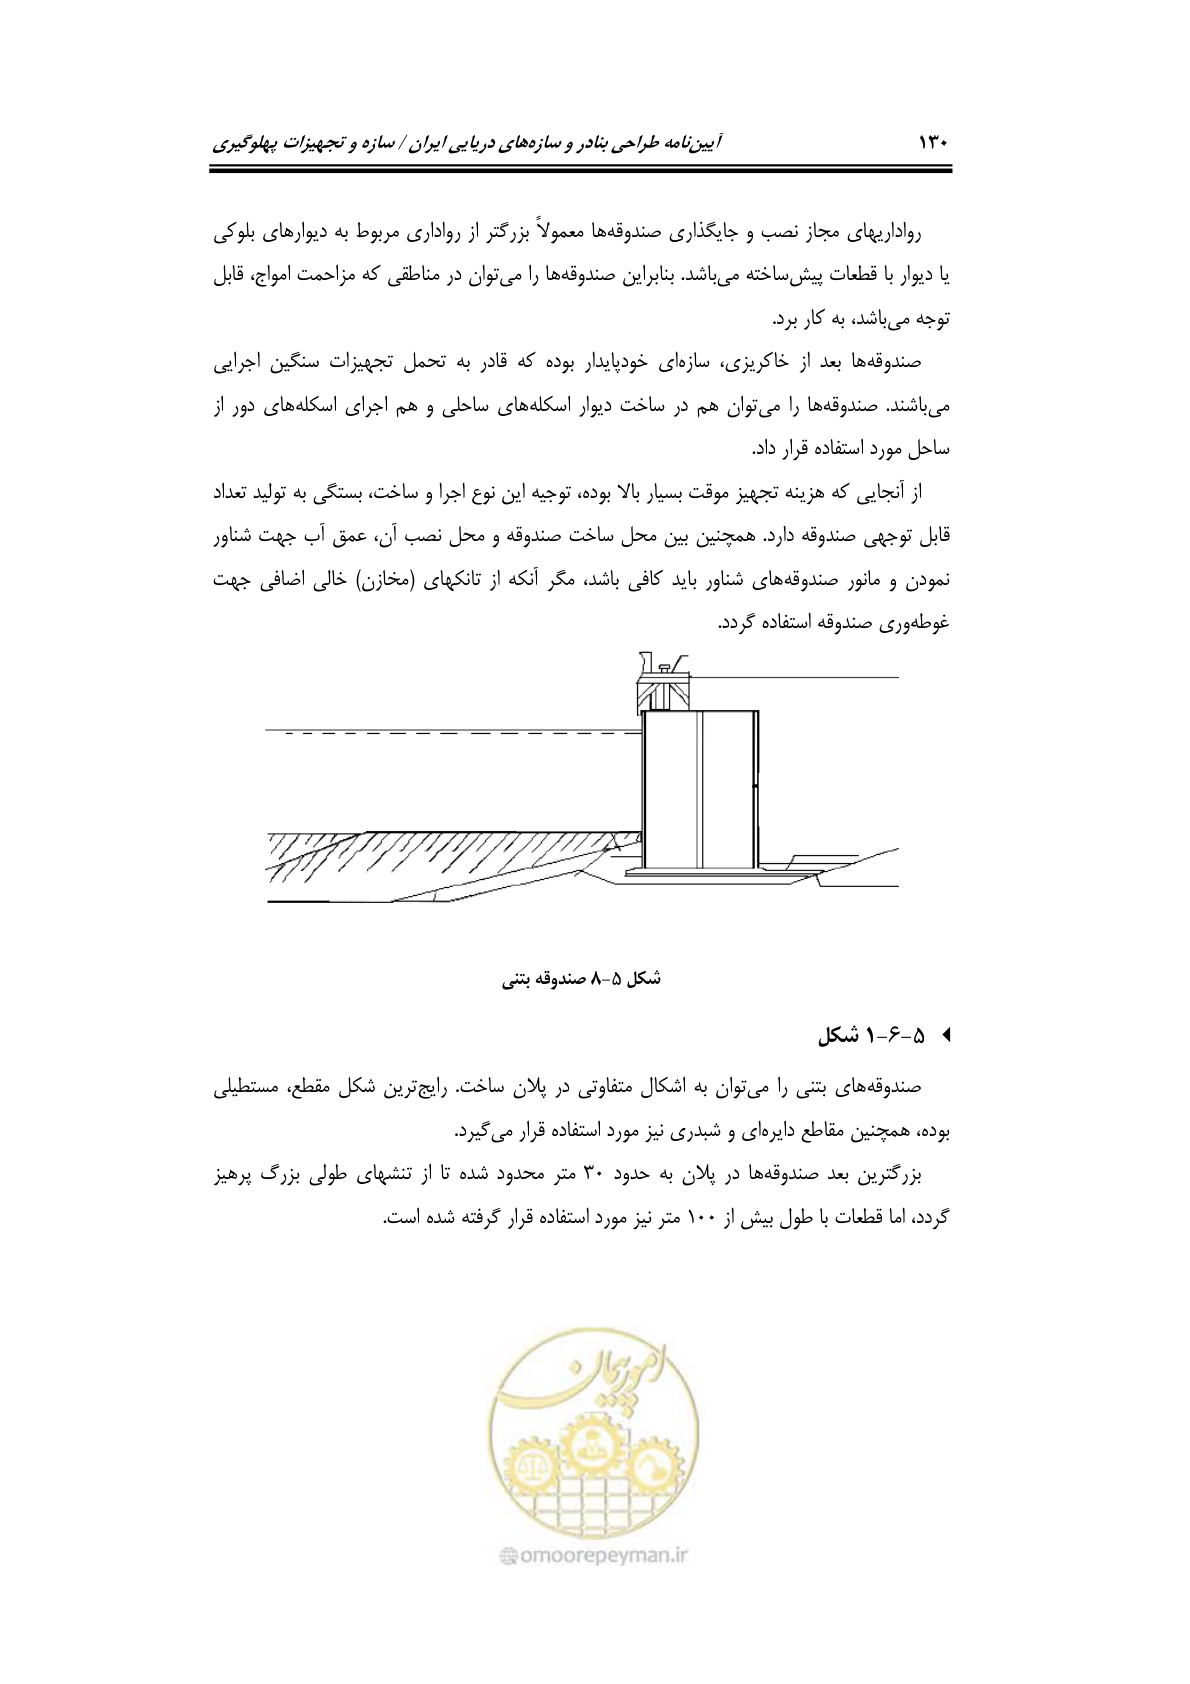 ۱۳۰ آیین‌نامه طراحی بنادر و سازه‌های دریایی ایران / سازه و تجهیزات پهلوگیری
رواداریهای مجاز نصب و جایگذاری صندوقه‌ها معمولاً بزرگتر از رواداری مربوط به دیوارهای بلوکی
یا دیوار با قطعات پیش‌ساخته می‌باشد. بنابراین صندوقه‌ها را می‌توان در مناطقی که مزاحمت امواج، قابل
توجه می‌باشد، به کار برد.
صندوقه‌ها بعد از خاکریزی، سازه‌ای خودپایدار بوده که قادر به تحمل تجهیزات سنگین اجرایی
می‌باشند. صندوقه‌ها را می‌توان هم در ساخت دیوار اسکله‌های ساحلی و هم اجرای اسکله‌های دور از
ساحل مورد استفاده قرار داد.
از آنجایی که هزینه تجهیز موقت بسیار بالا بوده، توجیه این نوع اجرا و ساخت، بستگی به تولید تعداد
قابل توجهی صندوقه دارد. همچنین بین محل ساخت صندوقه و محل نصب آن، عمق آب جهت شناور
نمودن و مانور صندوقه‌های شناور باید کافی باشد، مگر آنکه از تانکهای (مخازن) خالی اضافی جهت
غوطه‌وری صندوقه استفاده گردد.
شکل ۵-۸ صندوقه بتنی
۵-۶-۱ شکل
صندوقه‌های بتنی را می‌توان به اشکال متفاوتی در پلان ساخت. رایج‌ترین شکل مقطع، مستطیلی
بوده، همچنین مقاطع دایره‌ای و شبدری نیز مورد استفاده قرار می‌گیرد.
بزرگترین بعد صندوقه‌ها در پلان به حدود ۳۰ متر محدود شده تا از تنشهای طولی بزرگ پرهیز
گردد، اما قطعات با طول بیش از ۱۰۰ متر نیز مورد استفاده قرار گرفته شده است.
امور پیمان
omoorepeyman.ir